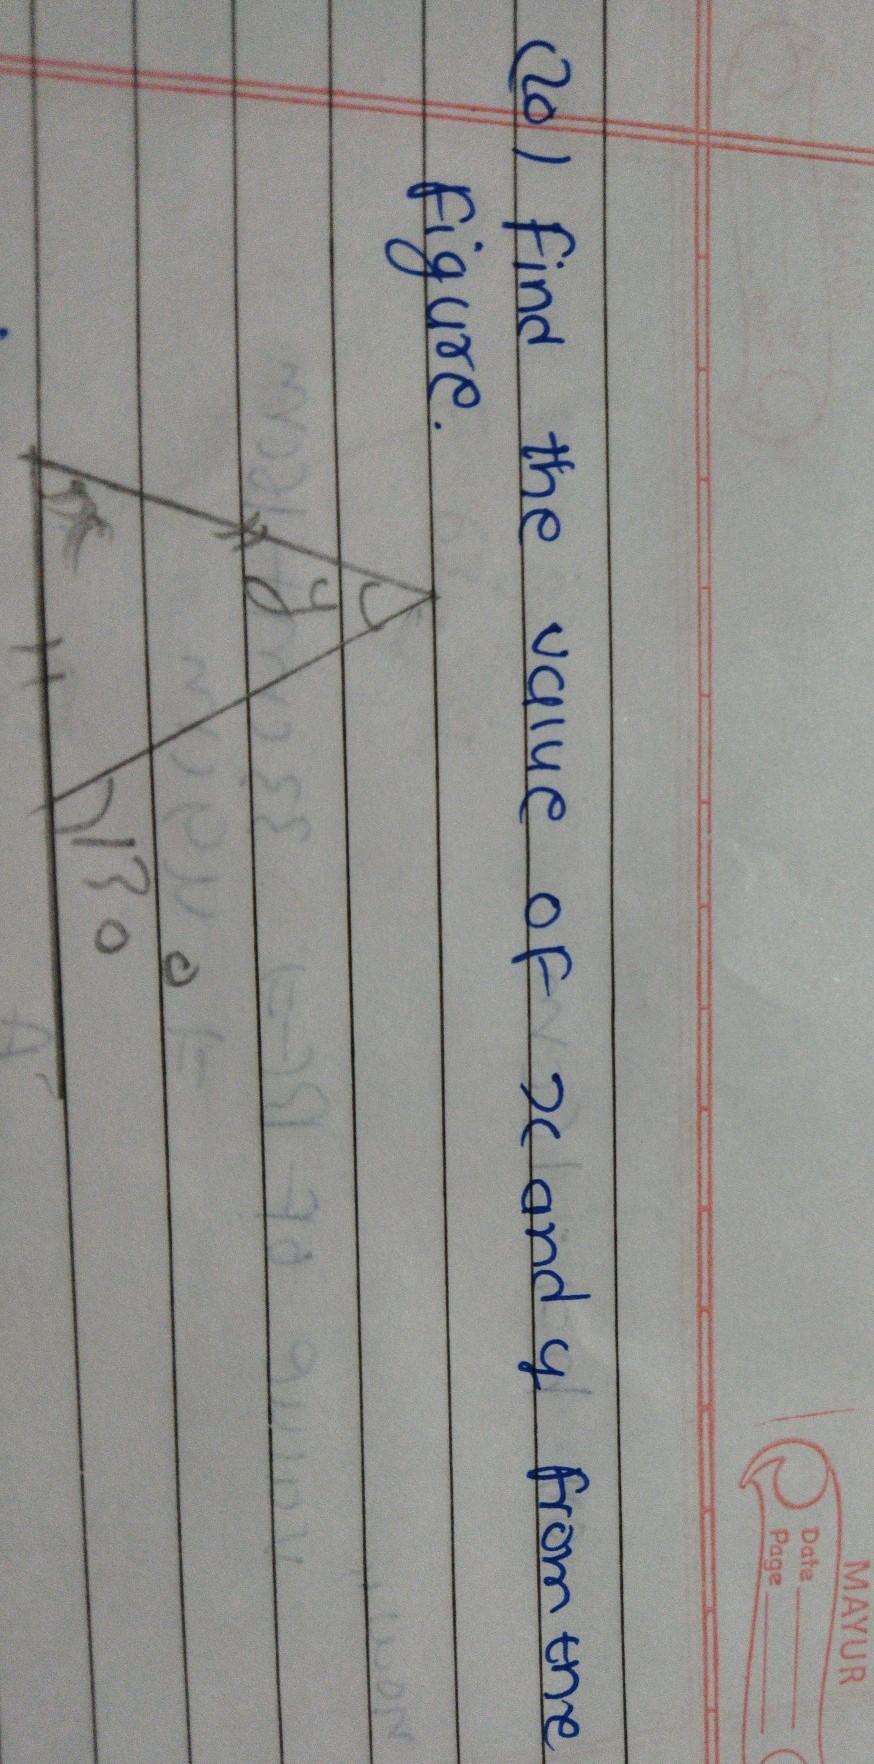 MAYUR
Date
Page
(20) find the value of x and y from the
figure.
y
x
130°